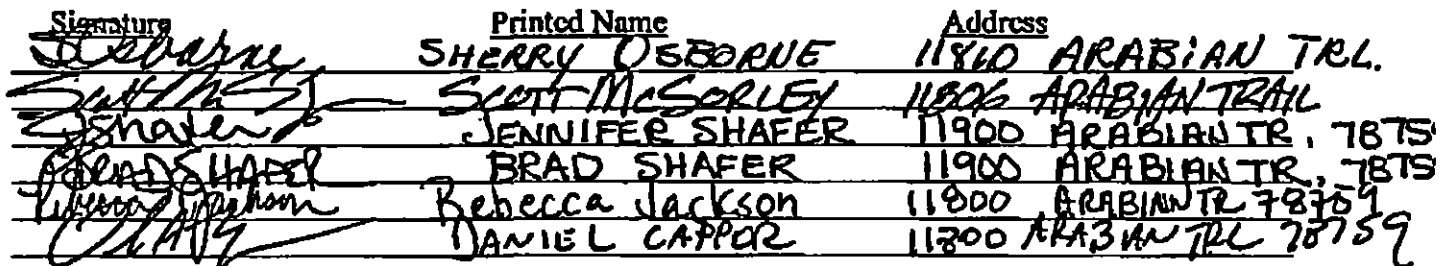 Signature Printed Name Address
SOsborne SHERRY OSBORNE 11810 ARABIAN TRL.
Scott McS SCOTT McSORLEY 11806 ARABIAN TRAIL
JShafer JENNIFER SHAFER 11900 ARABIAN TR, 7875
BRAD SHAFER BRAD SHAFER 11900 ARABIAN TR, 7875
Rebecca Jackson Rebecca Jackson 11800 ARABIAN TR 78759
DANIEL CAPPOR 11800 ARABIAN TRL 78759